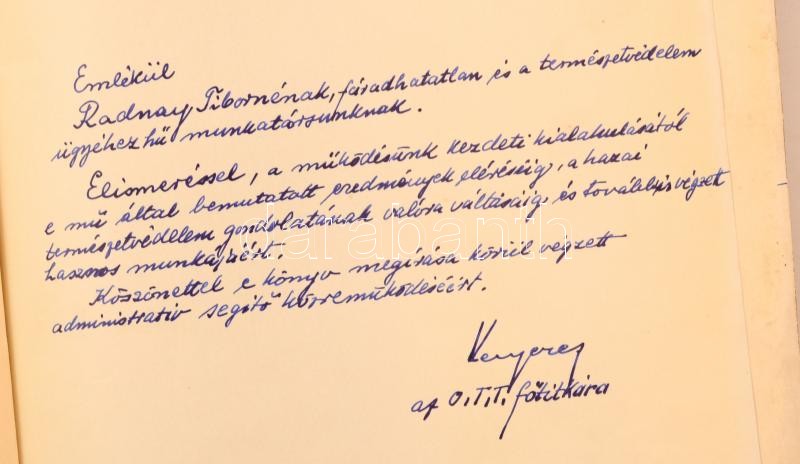 Emlékül
Radnay Tibornénak, fáradhatatlan és a természetvédelem
ügyéhez hű munkatársunknak.
Elismeréssel, a működésünk kezdeti kialakulásától
e mű által bemutatott eredmények eléréséig, a hazai
természetvédelem gondolatának valóra váltásáig, és továbbis végzett
hasznos munkájáért.
Köszönettel e könyv megírása körül végzett
administratív segítő közreműködéséért.
az O.T.T. főtitkára
darabanth